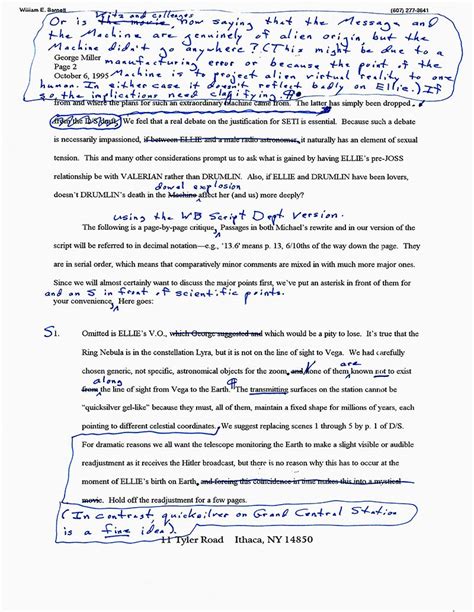 William E. Barnett
(607) 277-8641
Or is Fitz and colleagues the movie, now saying that the Message and
the Machine are genuinely of alien origin but the
Machine didn't go anywhere? (This might be due to a
George Miller
manufacturing error or because the point of the
Page 2
October 6, 1995
Machine is to project alien virtual reality to one
human. In either case it doesn't reflect badly on Ellie.) If
so, the implications need clarifying. ¶
from and where the plans for such an extraordinary machine came from. The latter has simply been dropped
from the D/S draft. We feel that a real debate on the justification for SETI is essential. Because such a debate
is necessarily impassioned, if between ELLIE and a male radio astronomer, it naturally has an element of sexual
tension. This and many other considerations prompt us to ask what is gained by having ELLIE's pre-JOSS
relationship be with VALERIAN rather than DRUMLIN. Also, if ELLIE and DRUMLIN have been lovers,
dowel explosion
doesn't DRUMLIN's death in the Machine affect her (and us) more deeply?
using the WB Script Dept. Version.
The following is a page-by-page critique. Passages in both Michael's rewrite and in our version of the
script will be referred to in decimal notation—e.g., '13.6' means p. 13, 6/10ths of the way down the page. They
are in serial order, which means that comparatively minor comments are mixed in with much more major ones.
Since we will almost certainly want to discuss the major points first, we've put an asterisk in front of them for
and an S in front of scientific points.
your convenience. Here goes:
S1. Omitted is ELLIE's V.O., which George suggested and which would be a pity to lose. It's true that the
Ring Nebula is in the constellation Lyra, but it is not on the line of sight to Vega. We had carefully
are
chosen generic, not specific, astronomical objects for the zoom, and none of them known not to exist
along
from the line of sight from Vega to the Earth. ¶ The transmitting surfaces on the station cannot be
"quicksilver gel-like" because they must, all of them, maintain a fixed shape for millions of years, each
pointing to different celestial coordinates. We suggest replacing scenes 1 through 5 by p. 1 of D/S.
For dramatic reasons we all want the telescope monitoring the Earth to make a slight visible or audible
readjustment as it receives the Hitler broadcast, but there is no reason why this has to occur at the
moment of ELLIE's birth on Earth, and forcing this coincidence in time makes this into a mystical
movie. Hold off the readjustment for a few pages.
(In contrast, quicksilver on Grand Central Station
is a fine idea).
11 Tyler Road Ithaca, NY 14850